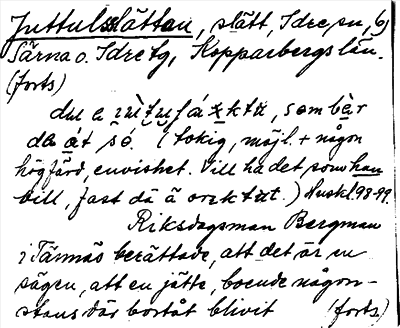 Juttulslätten, slätt, Idre sn, 6)
Särna o. Idre tg, Kopparbergs län.
(forts)
du a som bär
da át so. (tokig, möjl. + någon
högfärd, envishet. Vill ha det som han
vill, fast dä ä oriktut.) Huskl. 98-99.
Riksdagsman Bergman
i Tännäs berättade, att det är en
sägen, att en jätte, boende någon-
stans där bortåt blivit (forts)